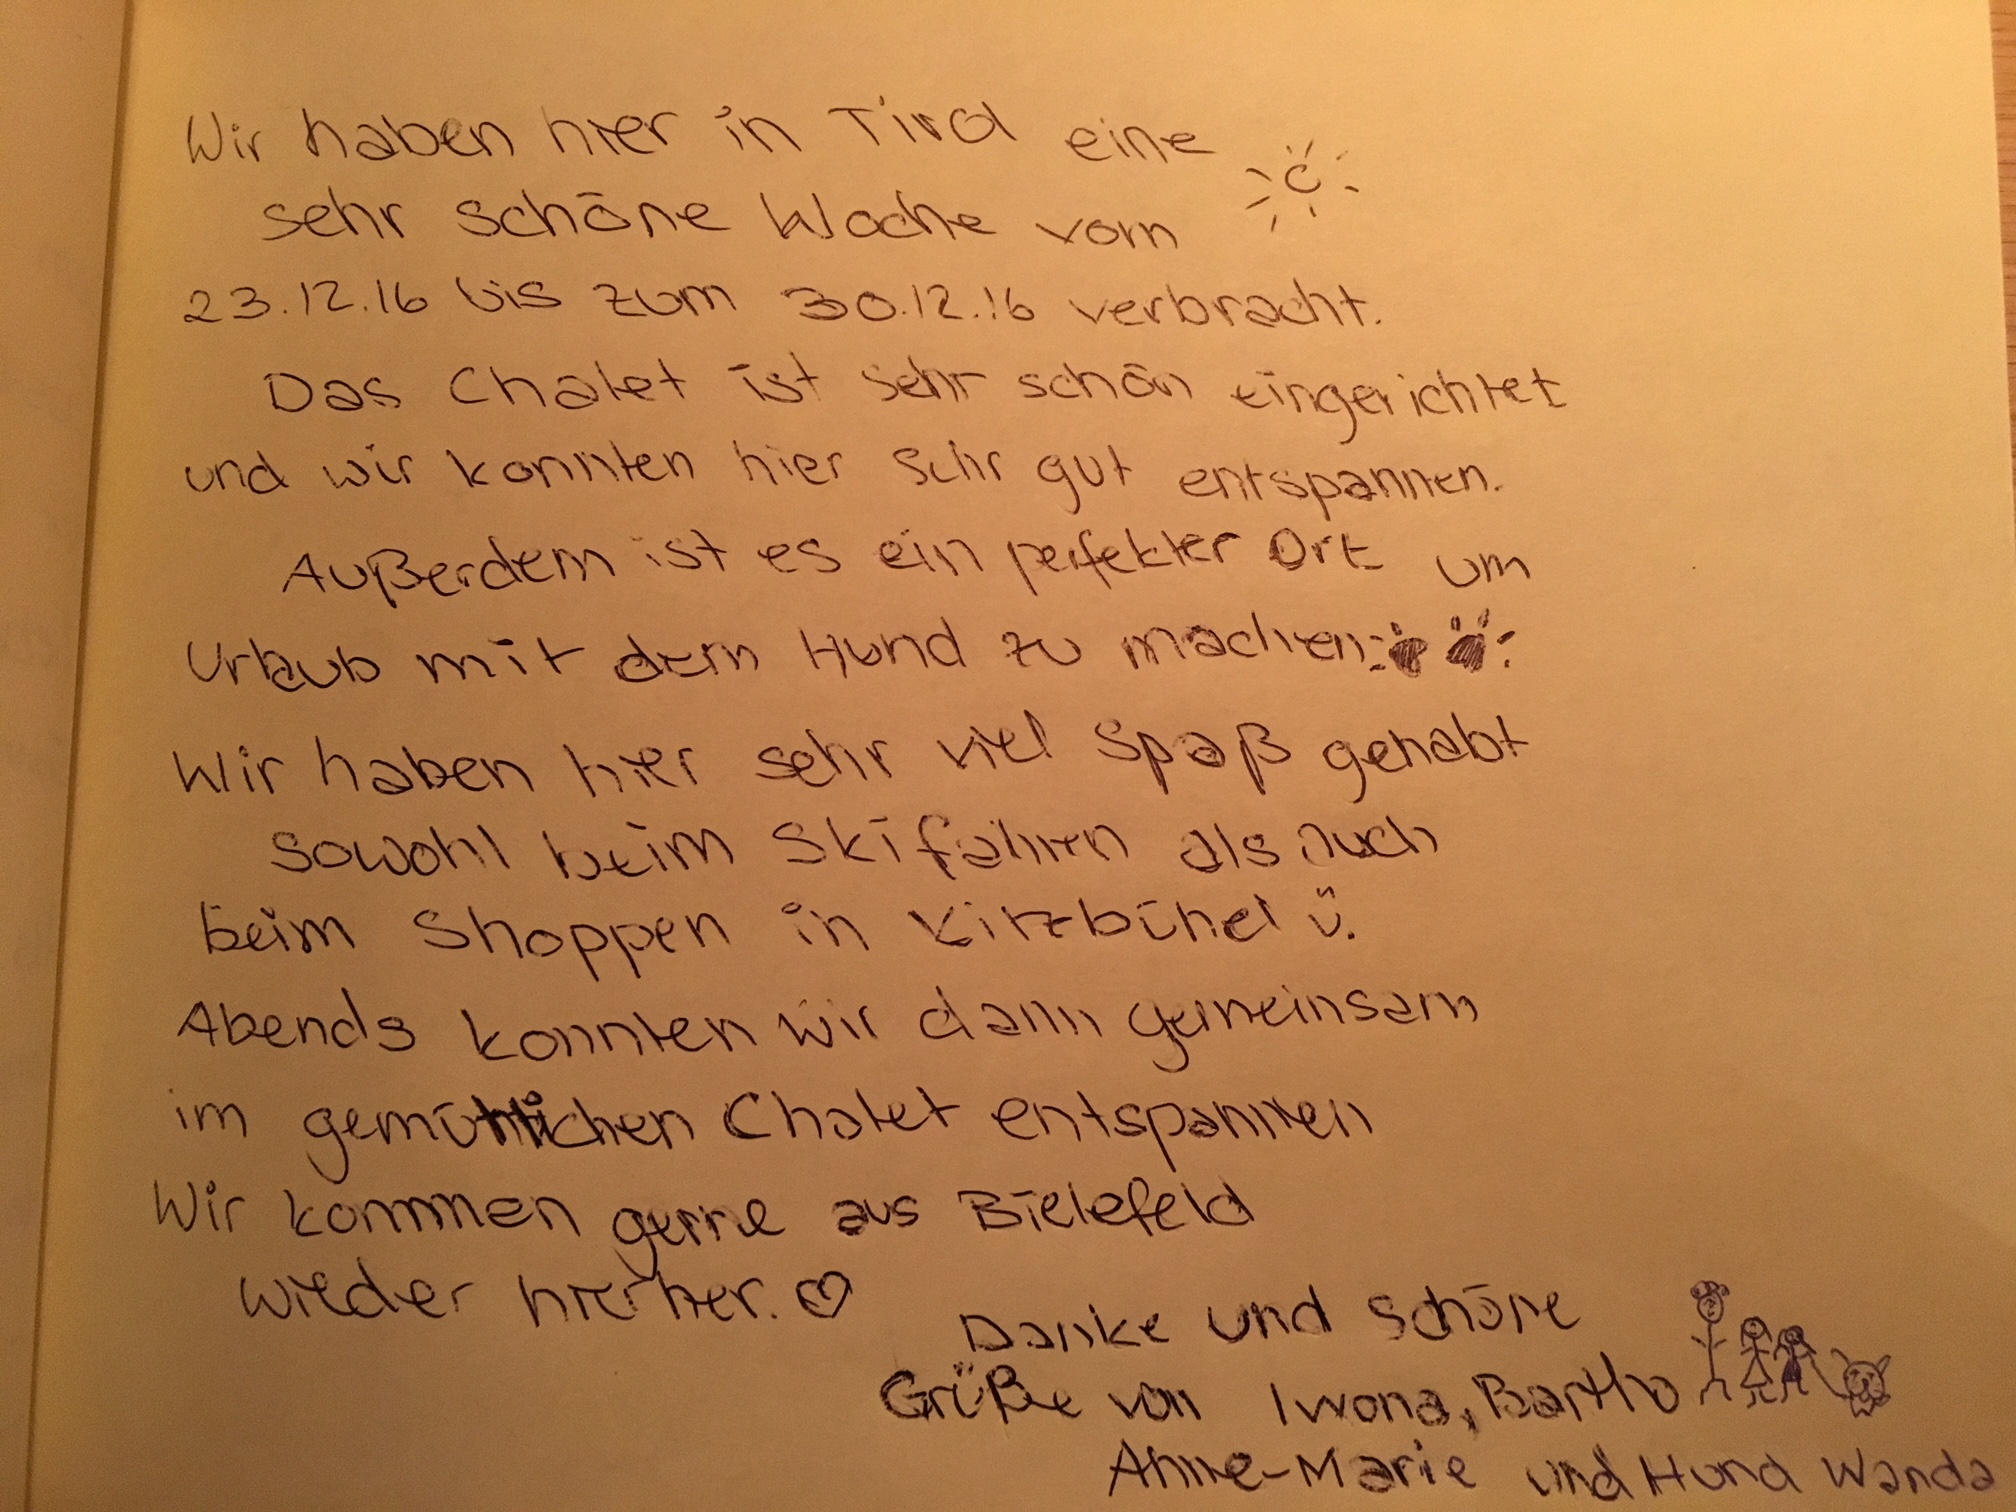 Wir haben hier in Tirol eine
sehr schöne Woche vom
23.12.16 bis zum 30.12.16 verbracht.
Das Chalet ist sehr schön eingerichtet
und wir konnten hier sehr gut entspannen.
Außerdem ist es ein perfekter Ort um
Urlaub mit dem Hund zu machen.
Wir haben hier sehr viel Spaß gehabt
sowohl beim Skifahren als auch
beim Shoppen in Kitzbühel ü.
Abends konnten wir dann gemeinsam
im gemütlichen Chalet entspannen
Wir kommen gerne aus Bielefeld
wieder hierher. ♡
Danke und schöne
Grüße von Iwona, Bartho
Anne-Marie und Hund Wanda